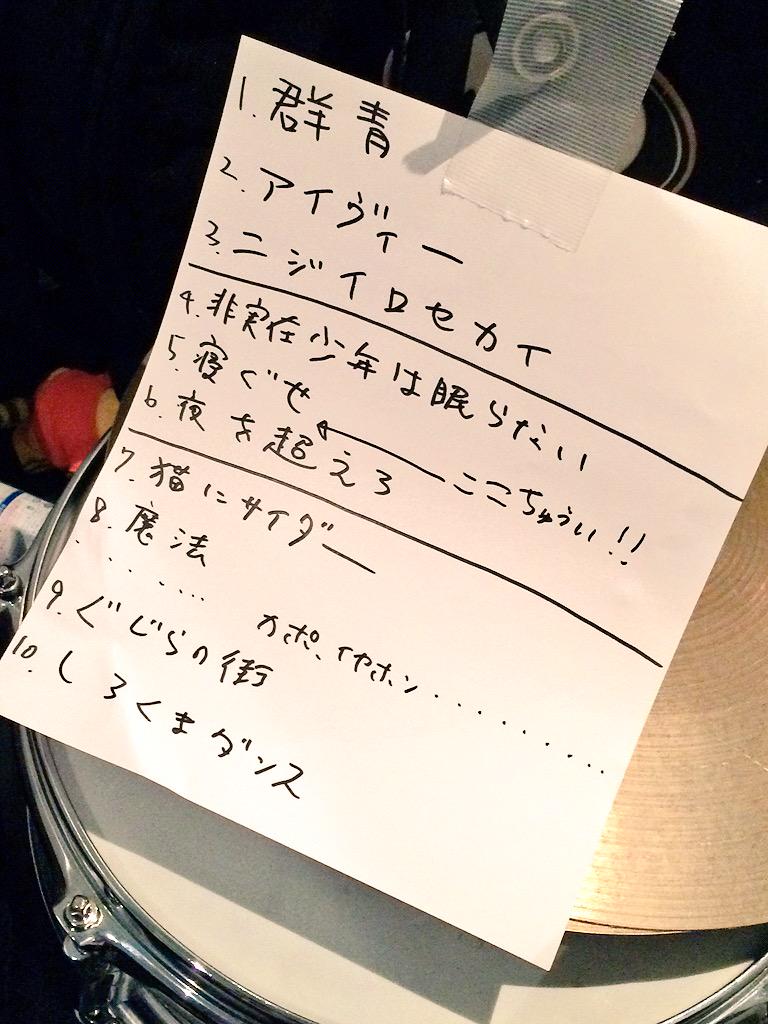 1. 群青
2. アイヴィー
3. ニジイロセカイ
4. 非実在少年は眠らない
5. 寝ぐせ
← ここちゅうい!!
6. 夜を超えろ
7. 猫にサイダー
8. 魔法
...... カポ、イヤホン.........
9. くじらの街
10. しろくまダンス